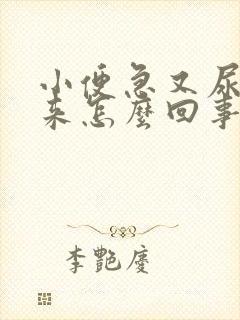 小便急又尿
来怎麼回事
李艷慶